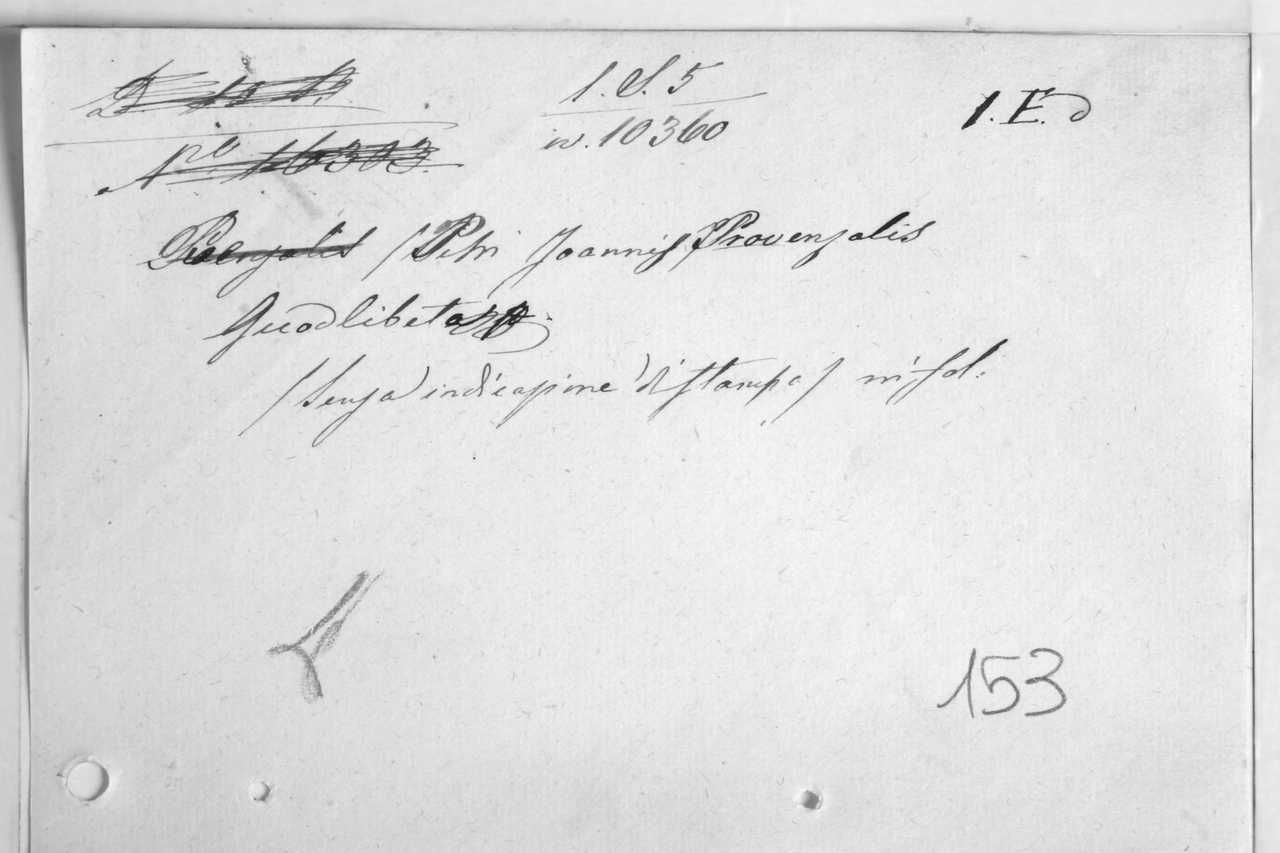 1. S. 5
1. E. d
N.ro 16303.
in. 10360
Provenzalis /Petri Joannis/ Provenzalis
Quodlibeta
/senza indicazione di stampa/ in fol:
153